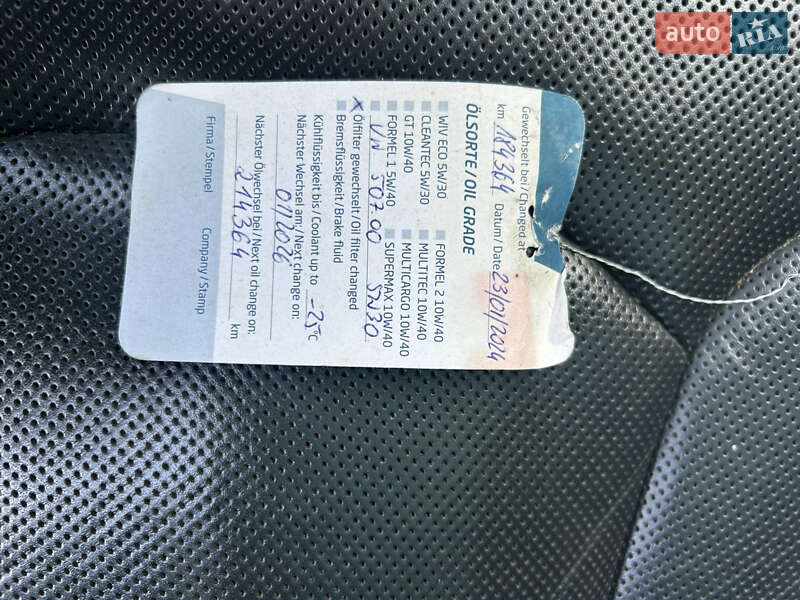 auto RIA
.com
Gewechselt bei / Changed at
km 184364 Datum / Date 23/01/2024
ÖLSORTE / OIL GRADE
WIV ECO 5W/30 FORMEL 2 10W/40
CLEANTEC 5W/30 MULTITEC 10W/40
GT 10W/40 MULTICARGO 10W/40
FORMEL 1 5W/40 SUPERMAX 10W/40
VW 507.00 5W30
x Ölfilter gewechselt / Oil filter changed
Bremsflüssigkeit / Brake fluid
Kühlflüssigkeit bis / Coolant up to -25 °C
Nächster Wechsel am: / Next change on:
01/2026
Nächster Ölwechsel bei / Next oil change on:
214364 km
Firma / Stempel Company / Stamp